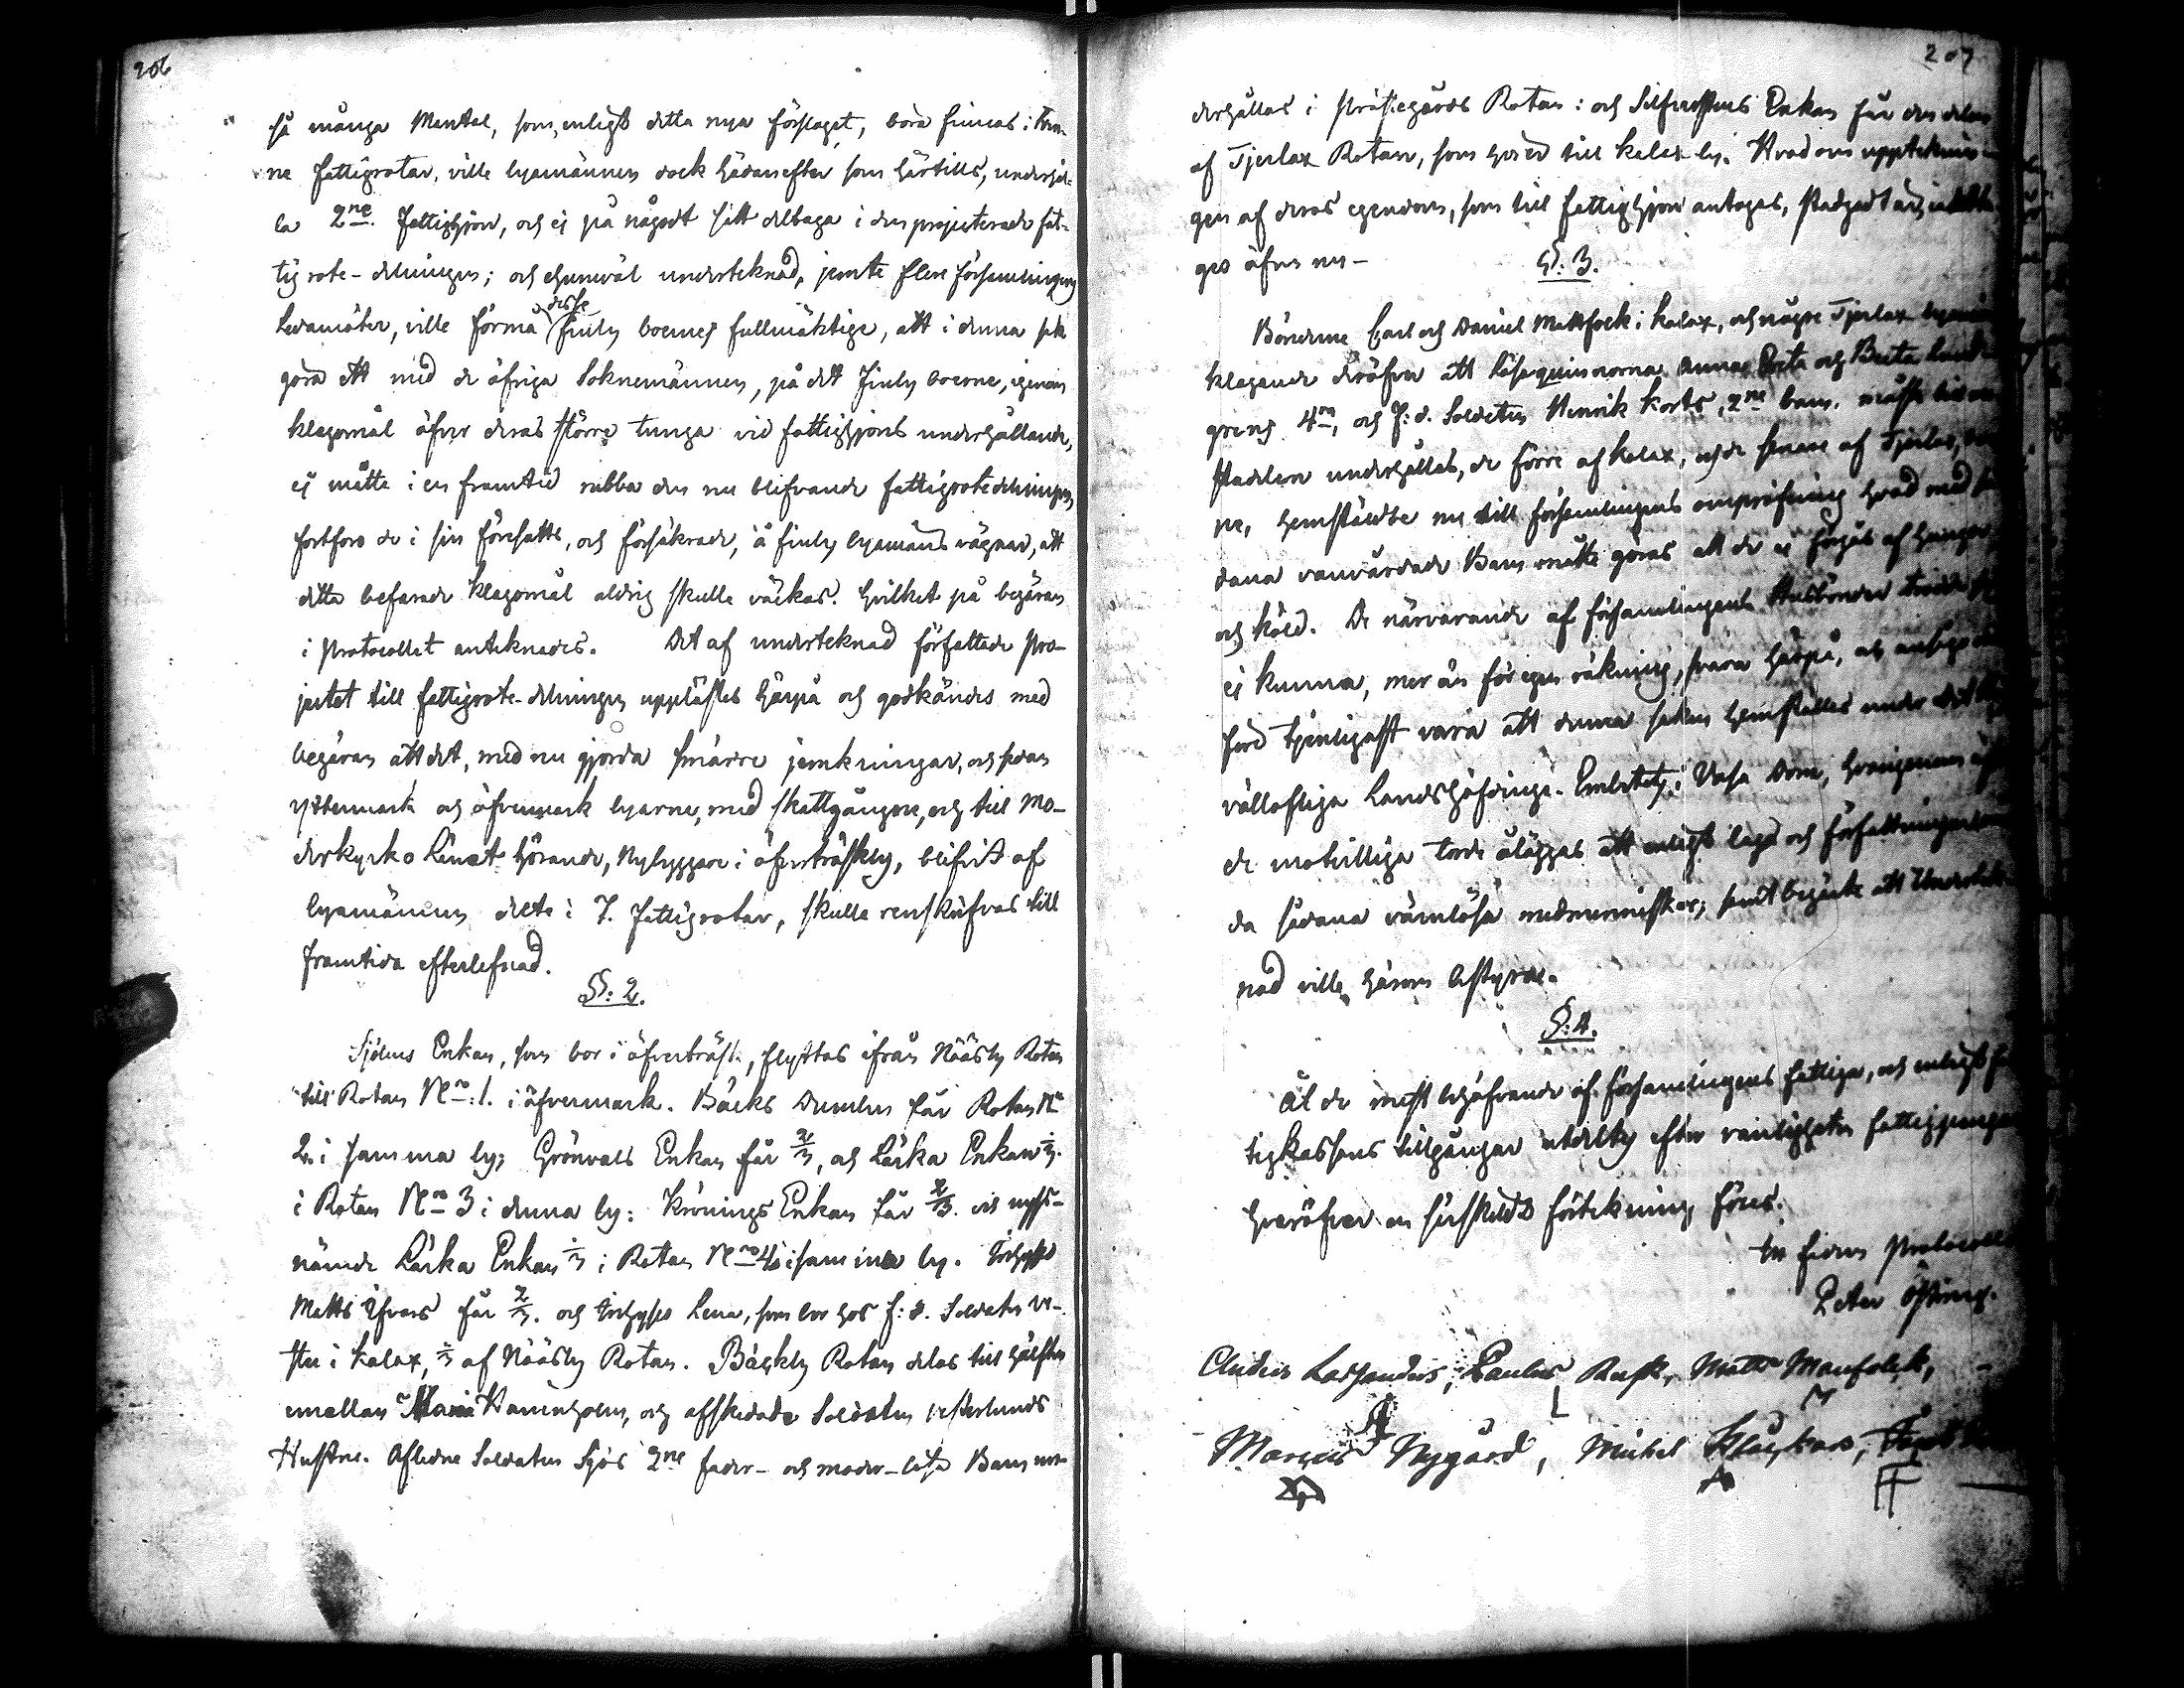 206
så många Mantal, som, enligt detta nya förslaget, böra finnas i den-
ne fattigrotar, ville byamännen dock hädanefter som härtills, underhål-
la 2ne. fattighjon, och ej på något sätt deltaga i den projecterade fat-
tig rote-delningen; och ehuruväl undertecknad, jemte flere församlingens
Ledamöter, ville förmå desse Finby boernes fullmäktige, att i denna sak
göra ett med de öfriga Soknemännen, på det Finby boerne, genom
klagomål öfver deras större tunga vid fattighjons underhållande,
ej måtte i en framtid rubba den nu blifvande fattigrotedelningen,
fortforo de i sin föresatts, och försäkrade, å Finby byamäns vägnar, att
detta befarade klagomål aldrig skulle väckas. Hvilket på begäran
i Protocollet antecknades. Det af undertecknad författade Pro-
jectet till fattigrote-delningen upplästes härpå och godkändes med
begäran att det, med nu gjorda smärre jemkningar, och sedan
yttermark och öfvermark byarne, med skattgångne, och till Mo-
derkyrko Länet hörande, Nybyggare i öfverträskby, blifvit af
byamännen delte i 7. fattigrotar, skulle renskrifvas till
framtida efterlefnad.
§: 2.
Sjölins Enkan, som bor i öfverträsk, flyttas ifrån Nääsby Rotan
till Rotan No: 1. i öfvermark. Bäcks Dumben får Rotan No
2. i samma by; Grönvalls Enkan får 2/3, och Lärka Enkan 1/3.
i Rotan No 3 i denna by: Krönings Enkan får 2/3. och nyss-
nämde Lärka Enkan 1/3 i Rotan No 4 i samma by.
Matts Ifvars får 2/3. och Lena, som bor hos f: d. Soldaten
i Kalax, 1/3 af Nääsby Rotan. Bäckby Rotan delas till hälften
emellan Maria Hanenholm, och afskedade Soldaten Vesterlunds
Hustru. Aflidne Soldaten Sjös 2ne fader- och moder-lösa Barn un-
207
derhållas i Prästegårds Rotan: och Silfverstens Enkan får den delen
af Tjerlax Rotan, som hörer till Kalax by. Hvad om uppteckning-
gen af deras egendom, som till fattighjon antagas, stadgadt är,
ges äfven nu-
§: 3.
Bönderne Carl och Daniel Mattfolk i Kalax, och någre Tjerlax
klagande deröfver att Lösaquinnorna Anna Greta och Brita
grens 4ra, och f: d. Soldaten Henrik Korts, 2ne barn. måste
underhållas, de förre af Kalax, och de senare af Tjerlax,
ne, hemstäldte nu till församlingens ompröfning hvad med
dana vanvårdade Barn måtte göras att de ej förgås af hunger
och köld. De närvarande af församlingens Husbönder trodde
ej kunna, mer än för egen räkning, svara härpå, och ansågo
före tjenligast vara att denna saken hemställes under det
vällofliga Landshöfdinge-Embetets i Vasa Dom, hvarigenom
de motvilliga torde åläggas att enligt lagen och författningarne
da sådana värnlösa medmenniskor; samt begärte att Underteck-
nad ville härom bestyra.
§: 4.
Åt de mest behöfvande af församlingens fattiga, och enligt fat-
tigkassans tillgångar utdeltes efter vanligheten fattigpenningar
hvaröfver en särskild förteckning föres.
In fidem Protocolli
Peter Östring.
Anders Ladsanders, Paulus Rusk, Matts Manfolck,
Marcus Nygård, Michel Klåckars,